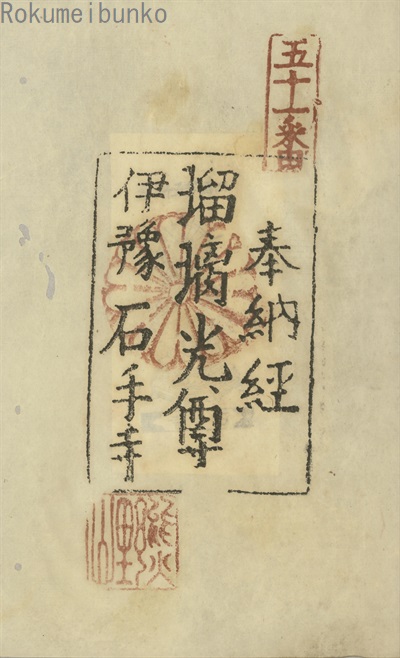 Rokumeibunko
五十一番
奉納経
瑠璃光尊
伊豫 石手寺